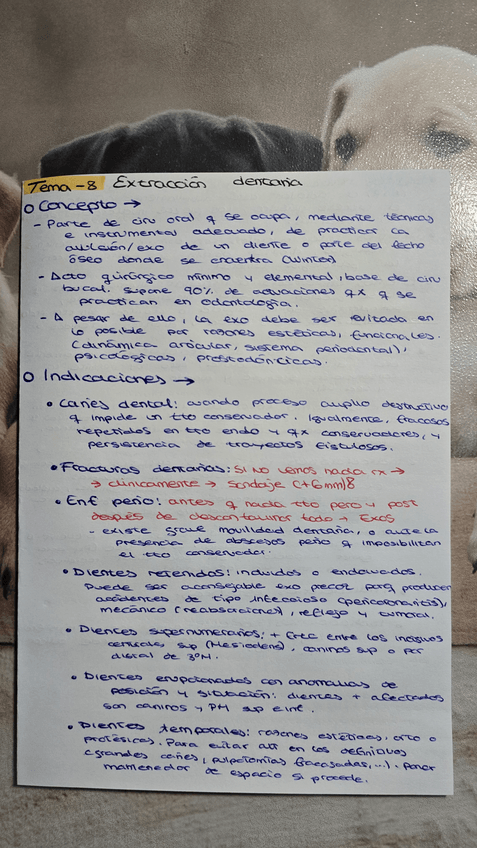 Tema-8 Extracción dentaria
○ Concepto →
- Parte de ciru oral q se ocupa, mediante técnicas
e instrumental adecuado, de practicar la
avulsión/exo de un diente o parte del lecho
óseo donde se encuentra (Winter)
- Acto quirúrgico mínimo y elemental, base de ciru
bucal. Supone 90% de actuaciones qx q se
practican en odontología.
- A pesar de ello, la exo debe ser evitada en
lo posible por razones estéticas, funcionales.
(dinámica articular, sistema periodontal),
psicológicas, prostodóncicas.
○ Indicaciones →
• Caries dental: cuando proceso amplio destructivo
q impide un tto conservador. Igualmente, fracasos
repetidos en tto endo y qx conservadores, y
persistencia de trayectos fistulosos.
• Fracturas dentarias: si no vemos nada rx →
→ clínicamente → sondaje (+6mm)
• Enf perio: antes q nada tto perio y post
después de descontaminar todo → Exos
- existe grave movilidad dentaria, o ante la
presencia de abscesos perio q imposibilitan
el tto conservador.
• Dientes retenidos: incluidos o enclavados.
Puede ser aconsejable exo precoz porq producen
accidentes de tipo infeccioso (pericoronaritis),
mecánico (reabsorciones), reflejo y tumoral.
• Dientes supernumerarios: + frec entre los incisivos
centrales sup (Mesiodens), caninos sup o por
distal de 3ºM.
• Dientes erupcionados con anomalías de
posición y situación: dientes + afectados
son caninos y PM sup e inf.
• Dientes temporales: razones estéticas, orto o
protésicas. Para evitar alt en los definitivos
(grandes caries, pulpotomías fracasadas,...). Poner
mantenedor de espacio si procede.